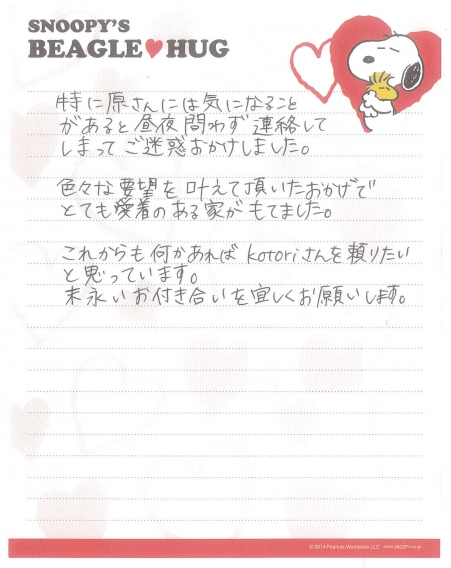 SNOOPY'S
BEAGLE♥HUG
特に原さんには気になること
があると昼夜問わず連絡して
しまってご迷惑おかけしました。
色々な要望を叶えて頂いたおかげで
とても愛着のある家がもてました。
これからも何かあればkotoriさんを頼りたい
と思っています。
末永いお付き合いを宜しくお願いします。
© 2014 Peanuts Worldwide LLC www.SNOOPY.co.jp